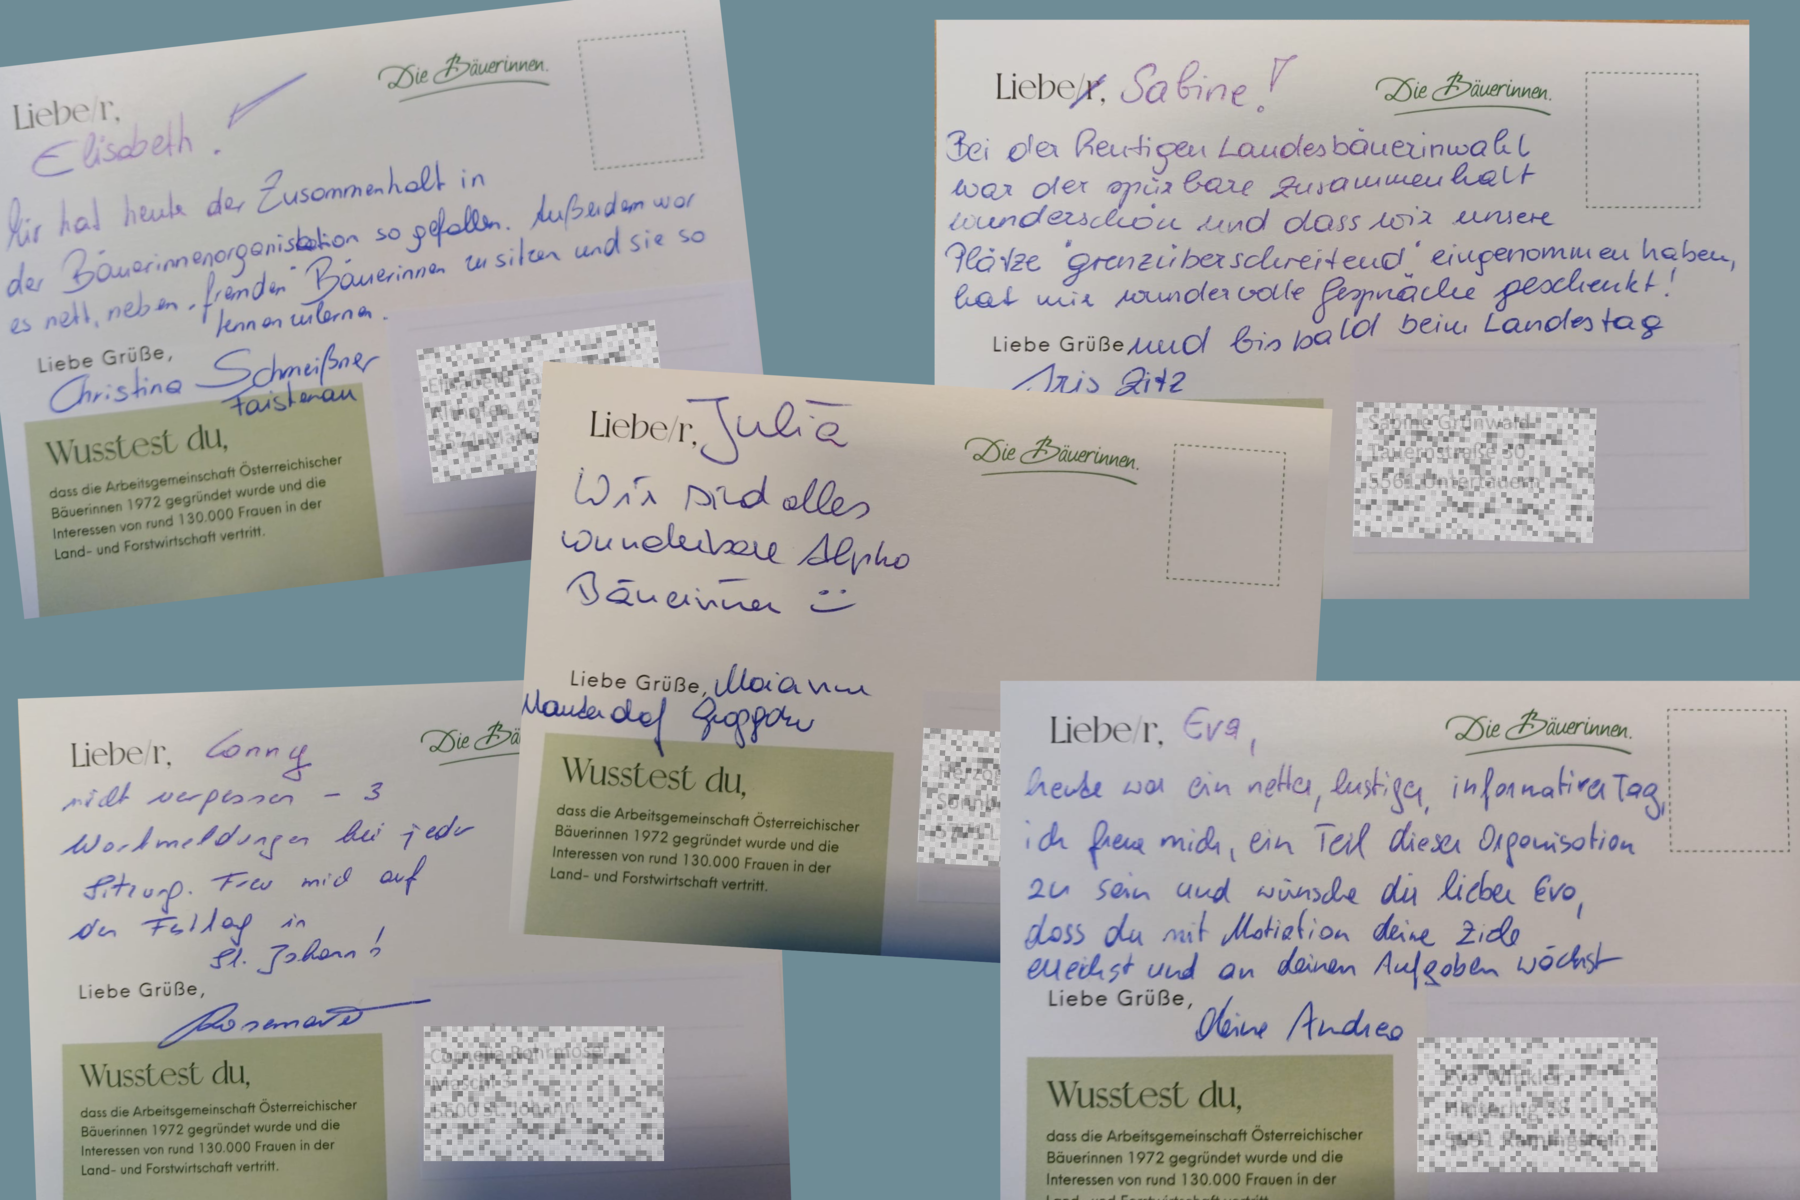 Die Bäuerinnen.
Liebe/r,
Elisabeth!
Mir hat heute der Zusammenhalt in
der Bäuerinnenorganisation so gefallen. Außerdem war
es nett, neben "fremden" Bäuerinnen zu sitzen und sie so
kennen zu lernen.
Liebe Grüße,
Christina Schmeißner
Faistenau
Wusstest du,
dass die Arbeitsgemeinschaft Österreichischer
Bäuerinnen 1972 gegründet wurde und die
Interessen von rund 130.000 Frauen in der
Land- und Forstwirtschaft vertritt.
Liebe/r, Sabine!
Die Bäuerinnen.
Bei der heutigen Landesbäuerinwahl
war der spürbare Zusammenhalt
wunderschön und dass wir unsere
Plätze "grenzüberschreitend" eingenommen haben,
hat mir wundervolle Gespräche geschenkt!
Liebe Grüße und bis bald beim Landestag
Iris Zitz
Liebe/r, Julia
Die Bäuerinnen.
Wir sind alles
wunderbare Alpha
Bäuerinnen
Liebe Grüße, Marianne
Wusstest du,
dass die Arbeitsgemeinschaft Österreichischer
Bäuerinnen 1972 gegründet wurde und die
Interessen von rund 130.000 Frauen in der
Land- und Forstwirtschaft vertritt.
Liebe/r, Conny
Die Bä
nicht vergessen - 3
Wortmeldungen bei jeder
Sitzung. Freu mich auf
den Festtag in
St. Johann!
Liebe Grüße,
Rosemarie
Wusstest du,
dass die Arbeitsgemeinschaft Österreichischer
Bäuerinnen 1972 gegründet wurde und die
Interessen von rund 130.000 Frauen in der
Land- und Forstwirtschaft vertritt.
Liebe/r, Eva,
Die Bäuerinnen.
heute war ein netter, lustiger, informativer Tag,
ich freue mich, ein Teil dieser Organisation
zu sein und wünsche dir liebe Eva,
dass du mit Motiation deine Ziele
erreichst und an deinen Aufgaben wächst
Liebe Grüße,
deine Andrea
Wusstest du,
dass die Arbeitsgemeinschaft Österreichischer
Bäuerinnen 1972 gegründet wurde und die
Interessen von rund 130.000 Frauen in der
Land- und Forstwirtschaft vertritt.